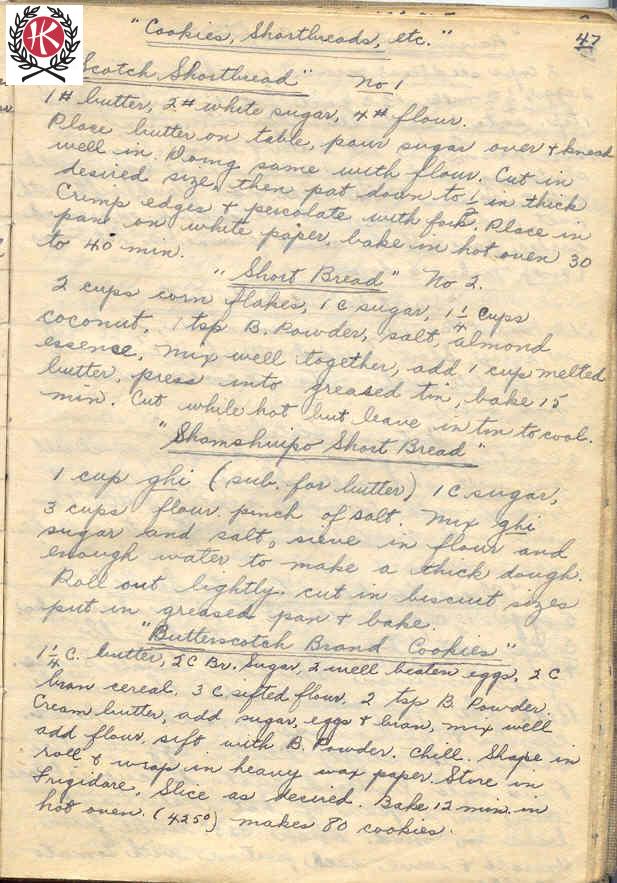 HK
"Cookies, Shortbreads, etc."
47
Scotch Shortbread" No 1
1# butter, 2# white sugar, 4# flour.
Place butter on table, pour sugar over & knead
well in. Doing same with flour. Cut in
desired size, then pat down to in thick
Crimp edges & percolate with fork. Place in
pans on white paper, bake in hot oven 30
to 40 min.
"Short Bread" No 2.
2 cups corn flakes, 1 c sugar, 1 1/4 cups
coconut, 1 tsp B. Powder, salt, almond
essence, mix well together, add 1 cup melted
butter, press into greased tin, bake 15
min. Cut while hot but leave in tin to cool.
"Shamshuipo Short Bread"
1 cup ghi (sub. for butter) 1 C. sugar,
3 cups flour. pinch of salt. Mix ghi
sugar and salt, sieve in flour and
enough water to make a thick dough.
Roll out lightly. cut in biscuit sizes
put in greased pan & bake.
"Butterscotch Brand Cookies"
1 1/4 C. butter, 2 C Br. Sugar, 2 well beaten eggs, 2 C
bran cereal. 3 C sifted flour. 2 tsp B. Powder.
Cream butter, add sugar, eggs & bran, mix well
add flour, sift with B. Powder. Chill. Shape in
roll & wrap in heavy wax paper. Store in
Frigidare. Slice as desired. Bake 12 min. in
hot oven. (425°) makes 80 cookies.